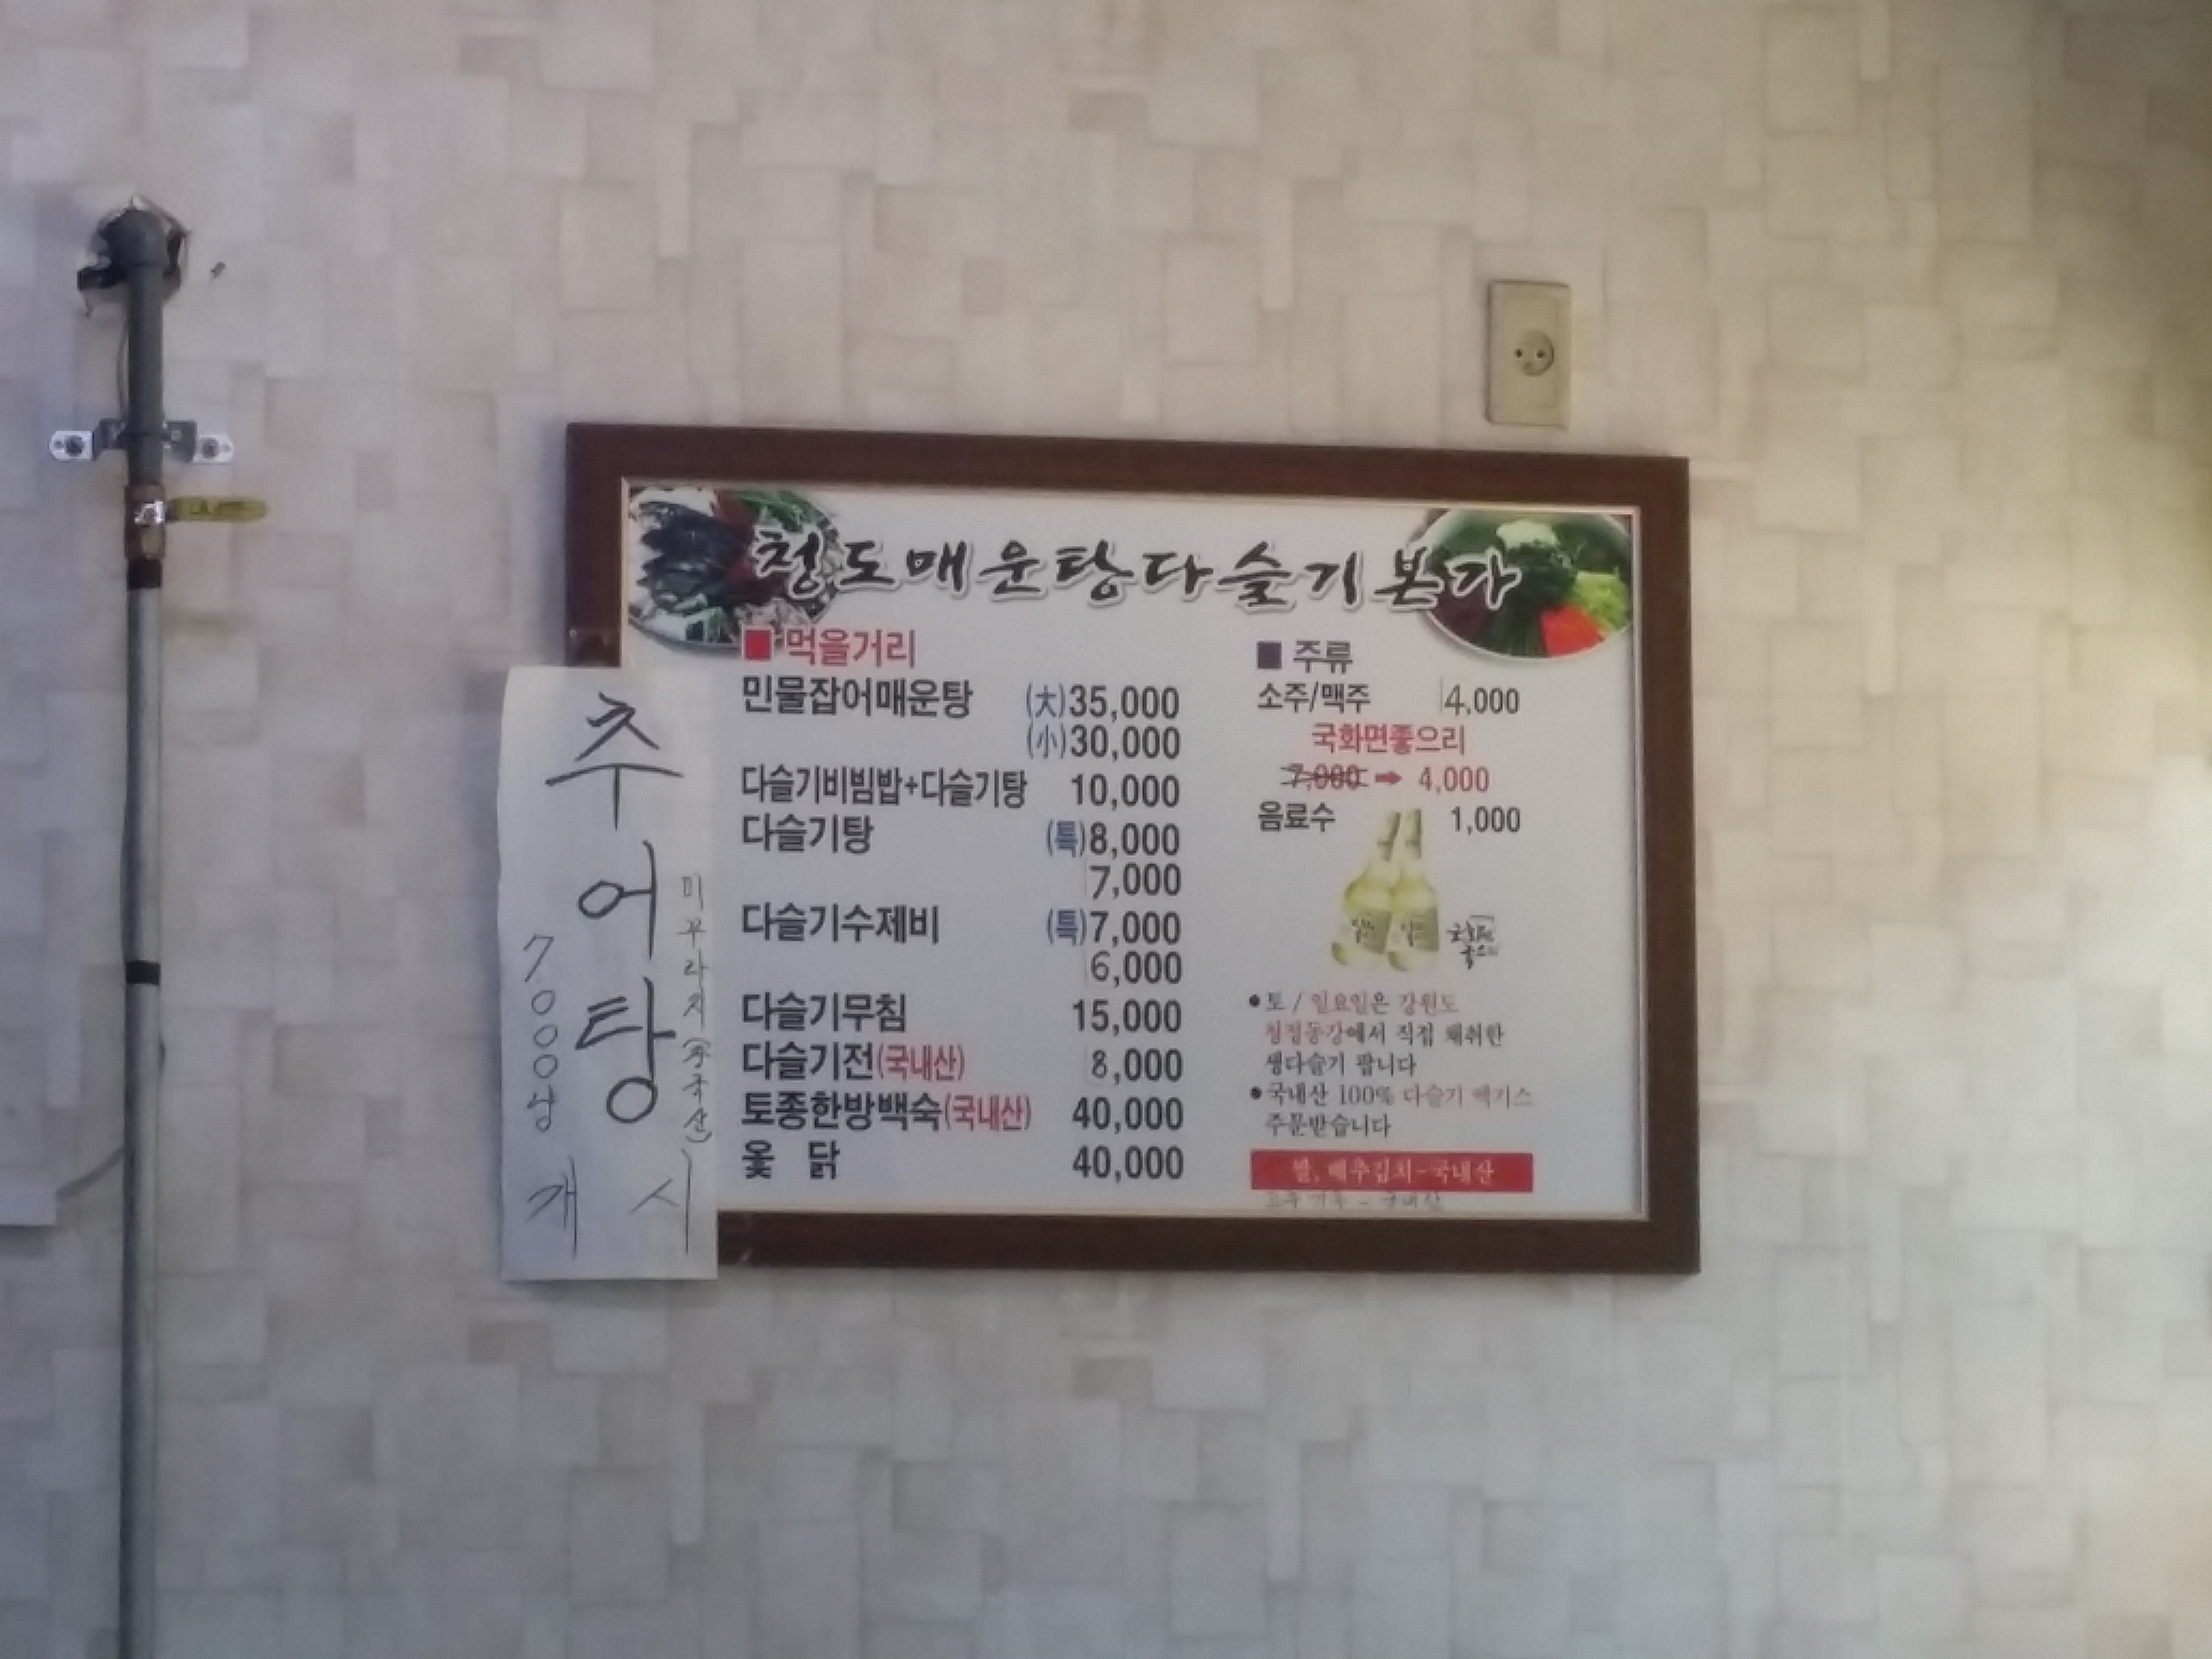 청도매운탕다슬기본가
■ 먹을거리
민물잡어매운탕 (大)35,000
(小)30,000
다슬기비빔밥+다슬기탕 10,000
다슬기탕 (특)8,000
7,000
다슬기수제비 (특)7,000
6,000
다슬기무침 15,000
다슬기전(국내산) 8,000
토종한방백숙(국내산) 40,000
옻 닭 40,000
■ 주류
소주/맥주 4,000
국화면좋으리
7,000 ➡ 4,000
음료수 1,000
●토 / 일요일은 강원도
청정동강에서 직접 채취한
생다슬기 팝니다
●국내산 100% 다슬기 엑기스
주문받습니다
쌀, 배추김치-국내산
고춧가루 - 국내산
추어탕
미꾸라지(중국산)
7000냥
개시